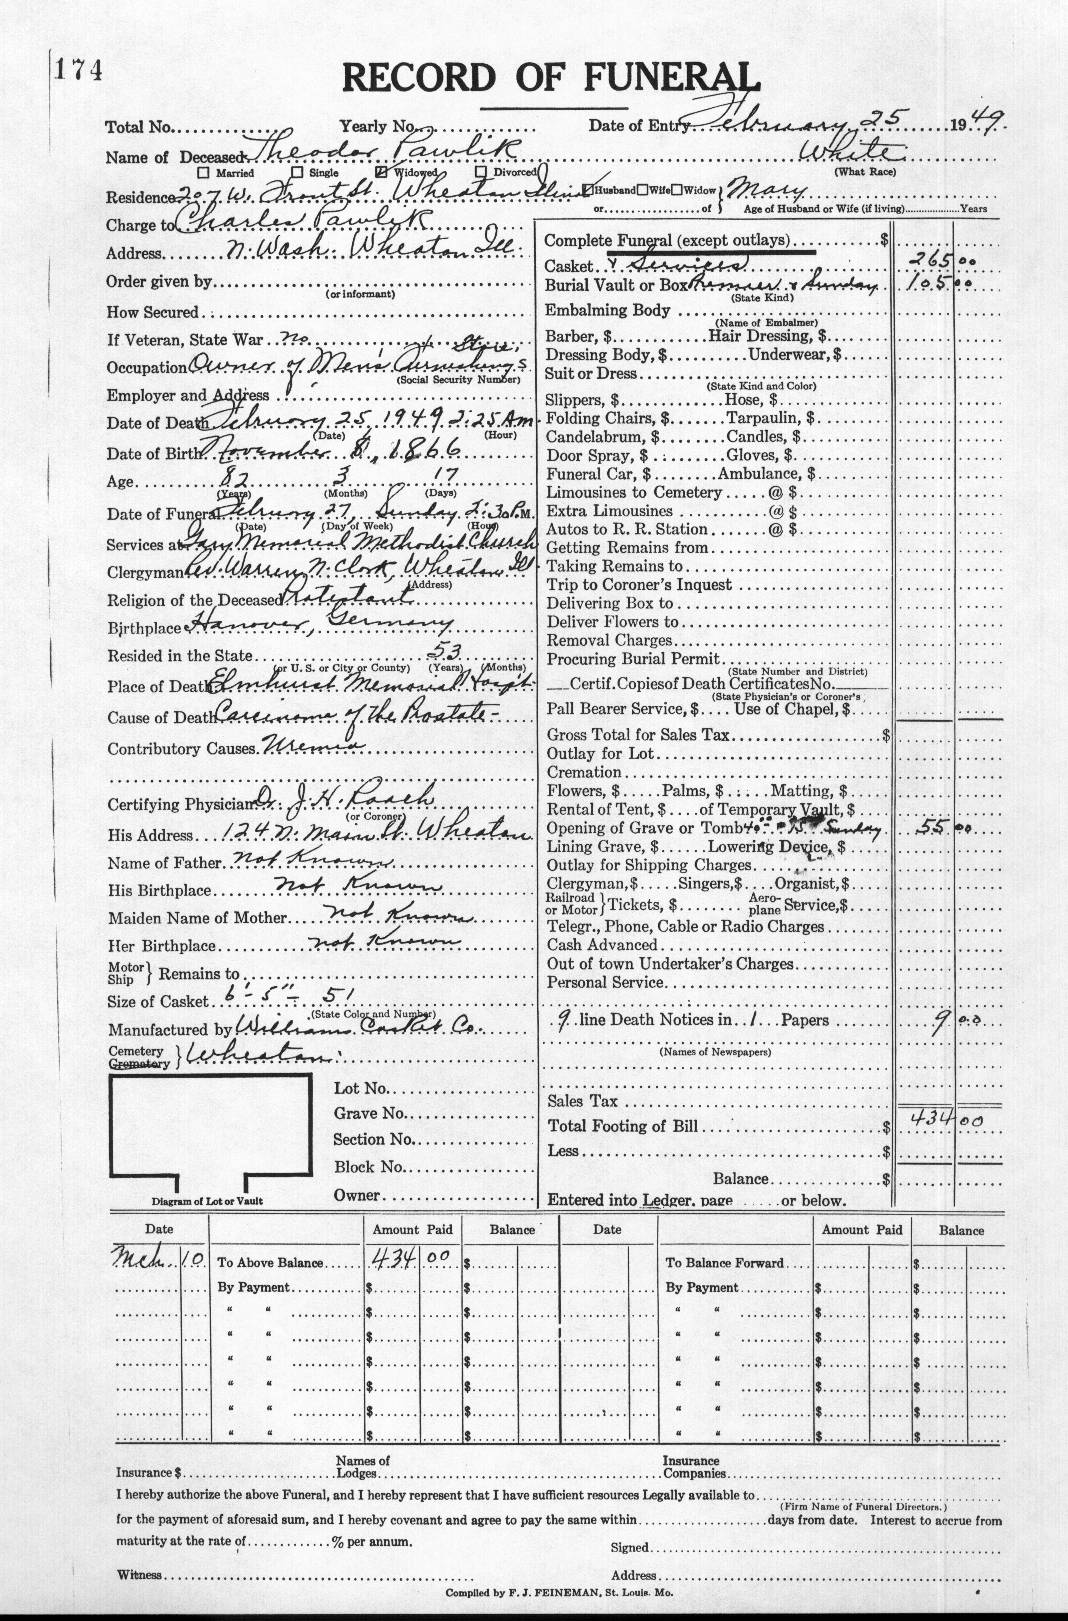 174
RECORD OF FUNERAL
Total No. Yearly No. Date of Entry February 25 1949
Name of Deceased Theodor Pawlik White
☐ Married ☐ Single ☑ Widowed ☐ Divorced (What Race)
Residence 207 W. Front St. Wheaton Illinois ☑Husband ☐Wife ☐Widow } Mary
or of } Age of Husband or Wife (if living) Years
Charge to Charles Pawlik
Address N. Wash. Wheaton Ill.
Order given by
(or informant)
How Secured
If Veteran, State War No
Occupation Owner of Men's Furnishings Store
(Social Security Number)
Employer and Address
Date of Death February 25, 1949 2:25 Am
(Date) (Hour)
Date of Birth November 8, 1866
Age 82 3 17
(Years) (Months) (Days)
Date of Funeral February 27, Sunday 2:30 P.M.
(Date) (Day of Week) (Hour)
Services at Gary Memorial Methodist Church
Clergyman Rev. Warren N. Clark, Wheaton Ill
(Address)
Religion of the Deceased Protestant
Birthplace Hanover, Germany
Resided in the State 53
(or U. S. or City or County) (Years) (Months)
Place of Death Elmhurst Memorial Hospt.
Cause of Death Carcenoma of the Prostate
Contributory Causes Uremia
Certifying Physician Dr. J. H. Roach
(or Coroner)
His Address 124 N. Main St. Wheaton
Name of Father not Known
His Birthplace not Known
Maiden Name of Mother not Known
Her Birthplace not Known
Motor Ship } Remains to
Size of Casket 6'-5"- 51
(State Color and Number)
Manufactured by Williams Casket Co.
Cemetery Crematory } Wheaton
Lot No.
Grave No.
Section No.
Block No.
Owner
Diagram of Lot or Vault
Complete Funeral (except outlays) $
Casket & Services 265 00
Burial Vault or Box Premier & Sunday 105 00
(State Kind)
Embalming Body
(Name of Embalmer)
Barber, $ Hair Dressing, $
Dressing Body, $ Underwear, $
Suit or Dress
(State Kind and Color)
Slippers, $ Hose, $
Folding Chairs, $ Tarpaulin, $
Candelabrum, $ Candles, $
Door Spray, $ Gloves, $
Funeral Car, $ Ambulance, $
Limousines to Cemetery @ $
Extra Limousines @ $
Autos to R. R. Station @ $
Getting Remains from
Taking Remains to
Trip to Coroner's Inquest
Delivering Box to
Deliver Flowers to
Removal Charges
Procuring Burial Permit
(State Number and District)
Certif. Copies of Death Certificates No.
(State Physician's or Coroner's)
Pall Bearer Service, $ Use of Chapel, $
Gross Total for Sales Tax $
Outlay for Lot
Cremation
Flowers, $ Palms, $ Matting, $
Rental of Tent, $ of Temporary Vault, $
Opening of Grave or Tomb 40 15 Sunday 55 00
Lining Grave, $ Lowering Device, $
Outlay for Shipping Charges
Clergyman, $ Singers, $ Organist, $
Railroad or Motor } Tickets, $ Aero-plane Service, $
Telegr., Phone, Cable or Radio Charges
Cash Advanced
Out of town Undertaker's Charges
Personal Service
9 line Death Notices in 1 Papers 9 00
(Names of Newspapers)
Sales Tax
Total Footing of Bill $ 434 00
Less $
Balance $
Entered into Ledger, page or below.
Date Amount Paid Balance Date Amount Paid Balance
Mch. 10 To Above Balance 434 00 $ To Balance Forward $
By Payment $ $ By Payment $ $
" " $ $ " " $ $
" " $ $ " " $ $
" " $ $ " " $ $
" " $ $ " " $ $
" " $ $ " " $ $
" " $ $ " " $ $
Insurance $ Names of Lodges Insurance Companies
I hereby authorize the above Funeral, and I hereby represent that I have sufficient resources Legally available to
(Firm Name of Funeral Directors.)
for the payment of aforesaid sum, and I hereby covenant and agree to pay the same within days from date. Interest to accrue from
maturity at the rate of % per annum.
Signed
Witness Address
Compiled by F. J. FEINEMAN, St. Louis. Mo.